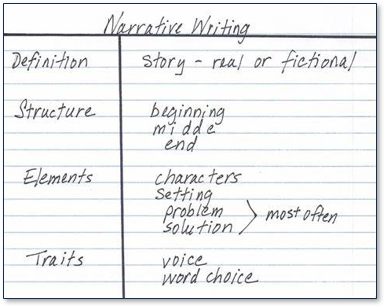 Narrative Writing
Definition story - real or fictional
Structure beginning
midde
end
Elements characters
setting
problem
solution > most often
Traits voice
word choice